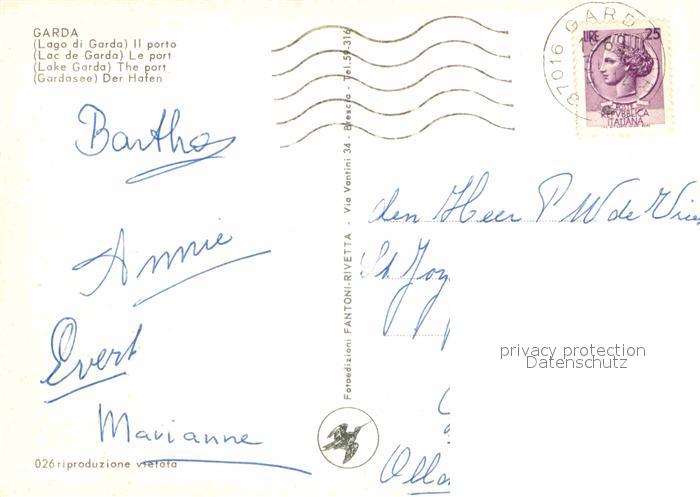 GARDA
(Lago di Garda) Il porto
(Lac de Garda) Le port
(Lake Garda) The port
(Gardasee) Der Hafen
Bartho
Annie
Evert
Marianne
026 riproduzione vietata
Fotoedizioni FANTONI-RIVETTA - Via Vantini 34 - Brescia - Tel. 59-316
37016 GARD
LIRE 25
REPVBBLICA
ITALIANA
den Heer P W de Vries
St Joz
Olla
privacy protection
Datenschutz